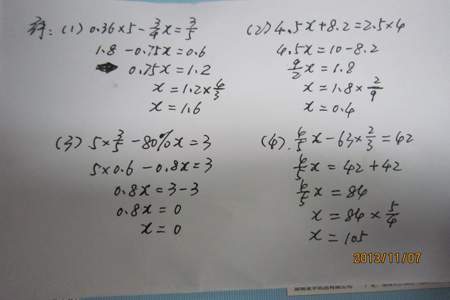 解:(1) 0.36×5-3/4x=3/5
1.8-0.75x=0.6
0.75x=1.2
x=1.2×4/3
x=1.6
(2) 4.5x+8.2=2.5×4
4.5x=10-8.2
9/2x=1.8
x=1.8×2/9
x=0.4
(3) 5×3/5-80%x=3
5×0.6-0.8x=3
0.8x=3-3
0.8x=0
x=0
(4). 4/5x-63×2/3=42
4/5x=42+42
4/5x=84
x=84×5/4
x=105
2013/11/07